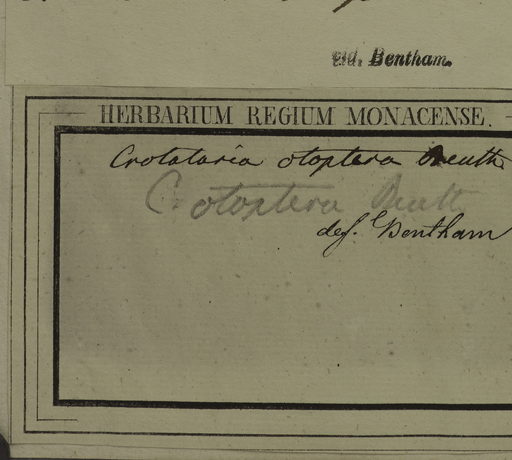 Bentham.
HERBARIUM REGIUM MONACENSE.
Crotalaria otoptera Benth
C. otoptera Benth
def. Bentham